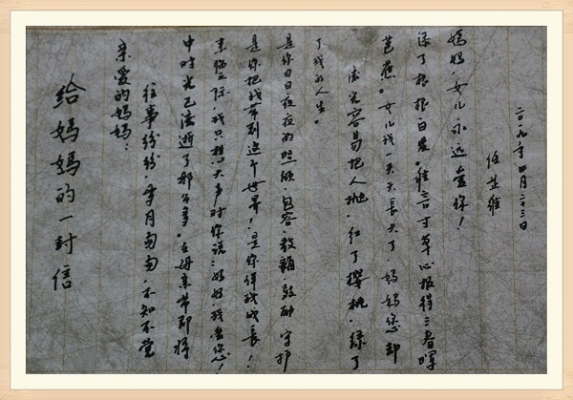 给妈妈的一封信
亲爱的妈妈：
往事纷纷，岁月匆匆，不知不觉
中时光已流逝了那么多。在母亲节即将
来临之际，我只想大声对你说：妈妈，我爱您！
是你把我带到这个世界！是你伴我成长！
是你日日夜夜的照顾、包容、教诲、鼓励、守护
了我的人生。
流光容易把人抛，红了樱桃，绿了
芭蕉。女儿我一天天长大了，妈妈您却
添了根根白发。谁言寸草心，报得三春晖
妈妈，女儿永远爱你！
任芷维
二〇一九年四月二十三日